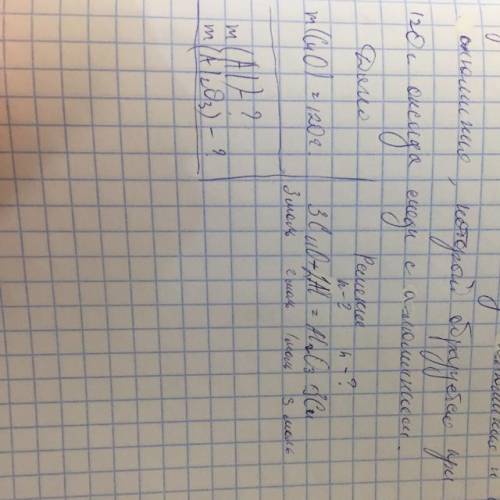 алюминия, который образуется при
120 г оксида меди с алюминием.
Дано
m(CuO) = 120г.
m(Al) - ?
m(Al₂O₃) - ?
Решение
n-? n-?
3CuO+2Al = Al₂O₃ 3Cu
3 моль 2 моль 1 моль 3 моль